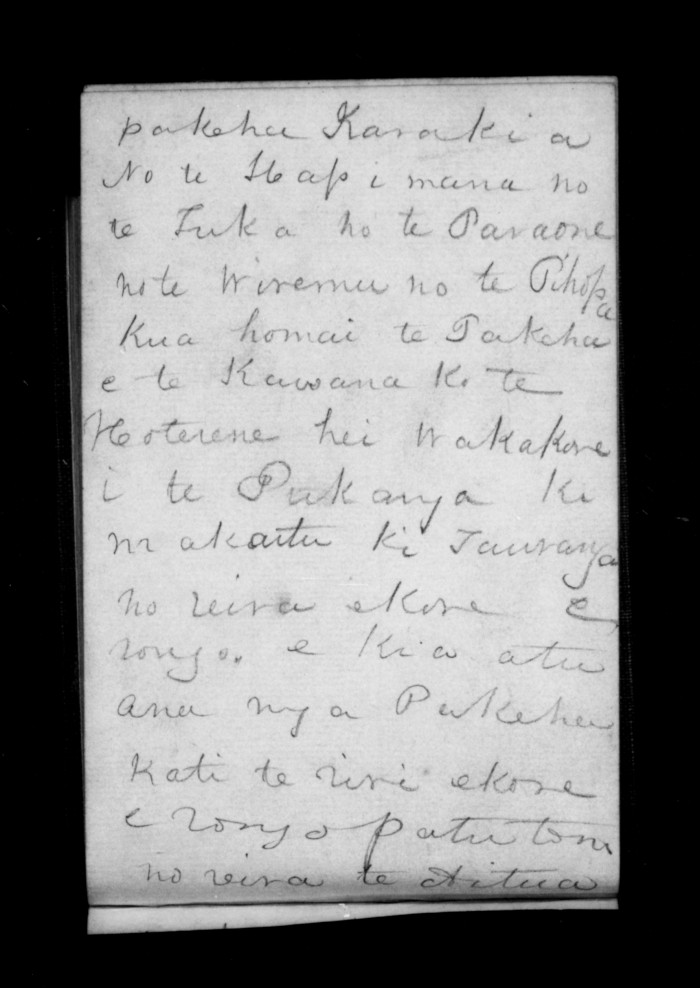 pakeha Karakia
No te Hapimana no
te Tuka no te Paraone
note Wiremu no te Pihopa
Kua homai te Pakeha
e te Kawana Ko te
Hoterene hei Wakakore
i te Pukanga Ki
makatu ki Tauranga
no reira ekore e
rongo. e Kia atu
ana nga Pakeha
Kati te riri ekore
e rongo patu tonu
no reira te Aitua